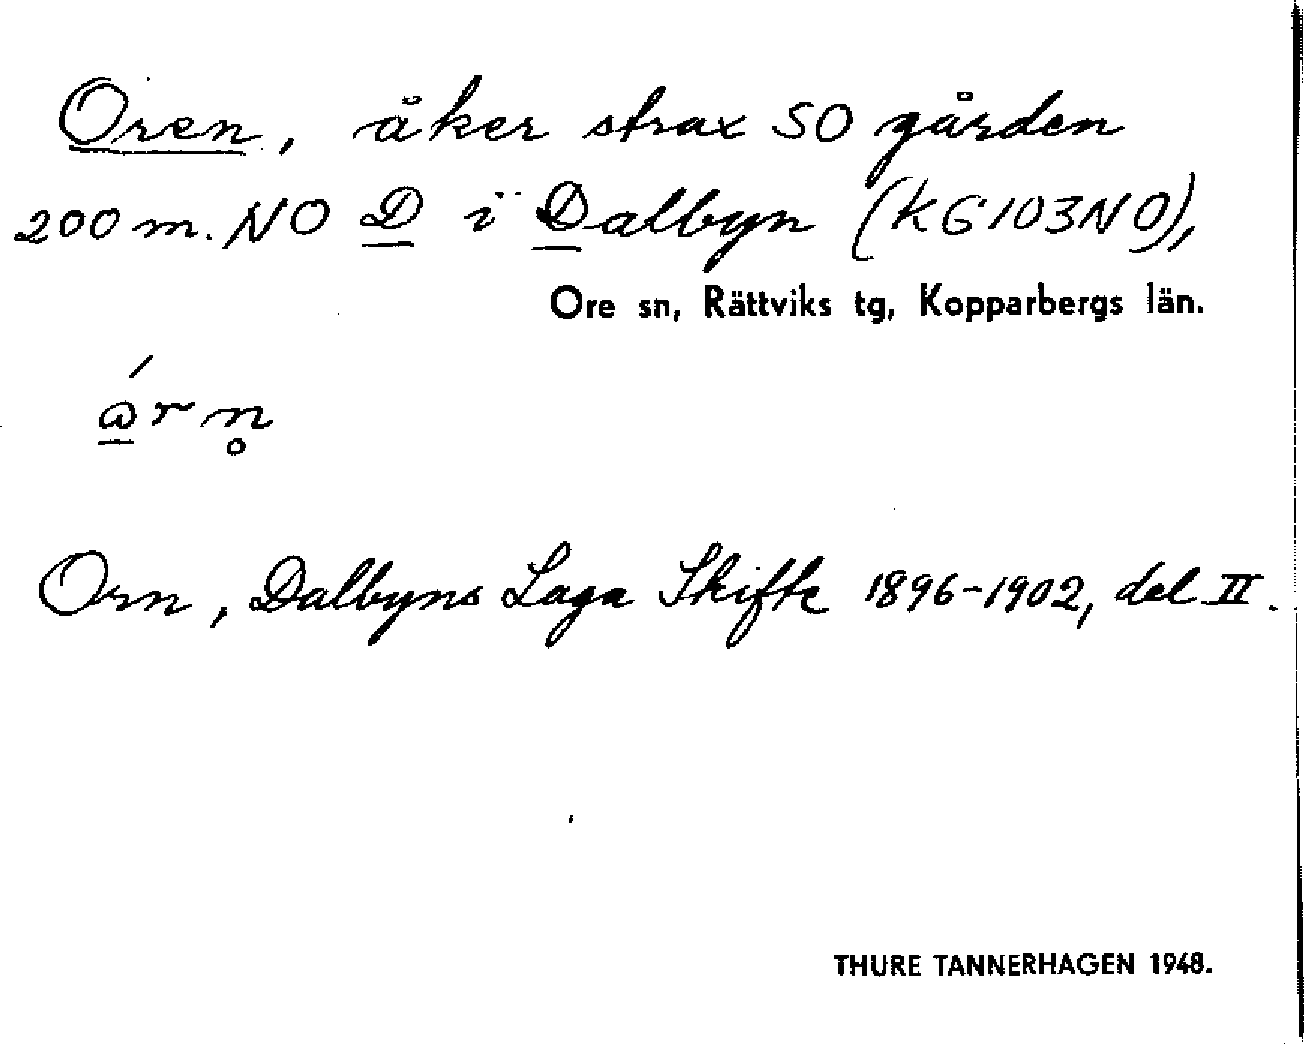 Oren, åker strax SO gården
200 m. NO D i Dalbyn (KG 103 NO),
Ore sn, Rättviks tg, Kopparbergs län.
Orn, Dalbyns Laga Skifte 1896-1902, del II.
THURE TANNERHAGEN 1948.